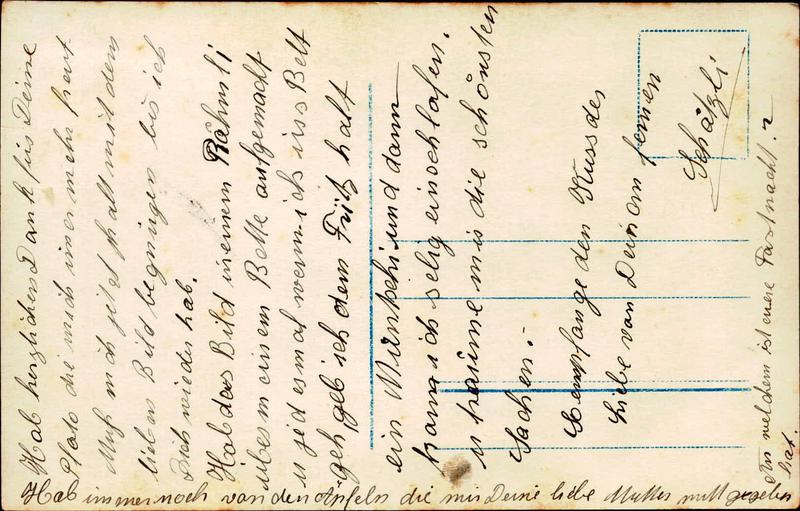 Hab herzlichen Dank für Deine
Foto die mich imer mehr freut
Muß mich jetzt halt mit dem
lieben Bild begnügen bis ich
Dich wieder hab.
Hab das Bild in einem Rähmli
über m einem Bette aufgemacht
u jedesmal wenn ich ins Bett
geh geb ich dem Fritz halt
ein Müntschi und dann
kann ich selig einschlafen.
u träume mir die schönsten
Sachen.
Empfange den Kuss der
Liebe von Deinem fernen
Schätzli
An welchem ist euere Fastnacht?
Hab immer noch von den Äpfeln die mir Deine liebe Mutter mitgegeben
hat.